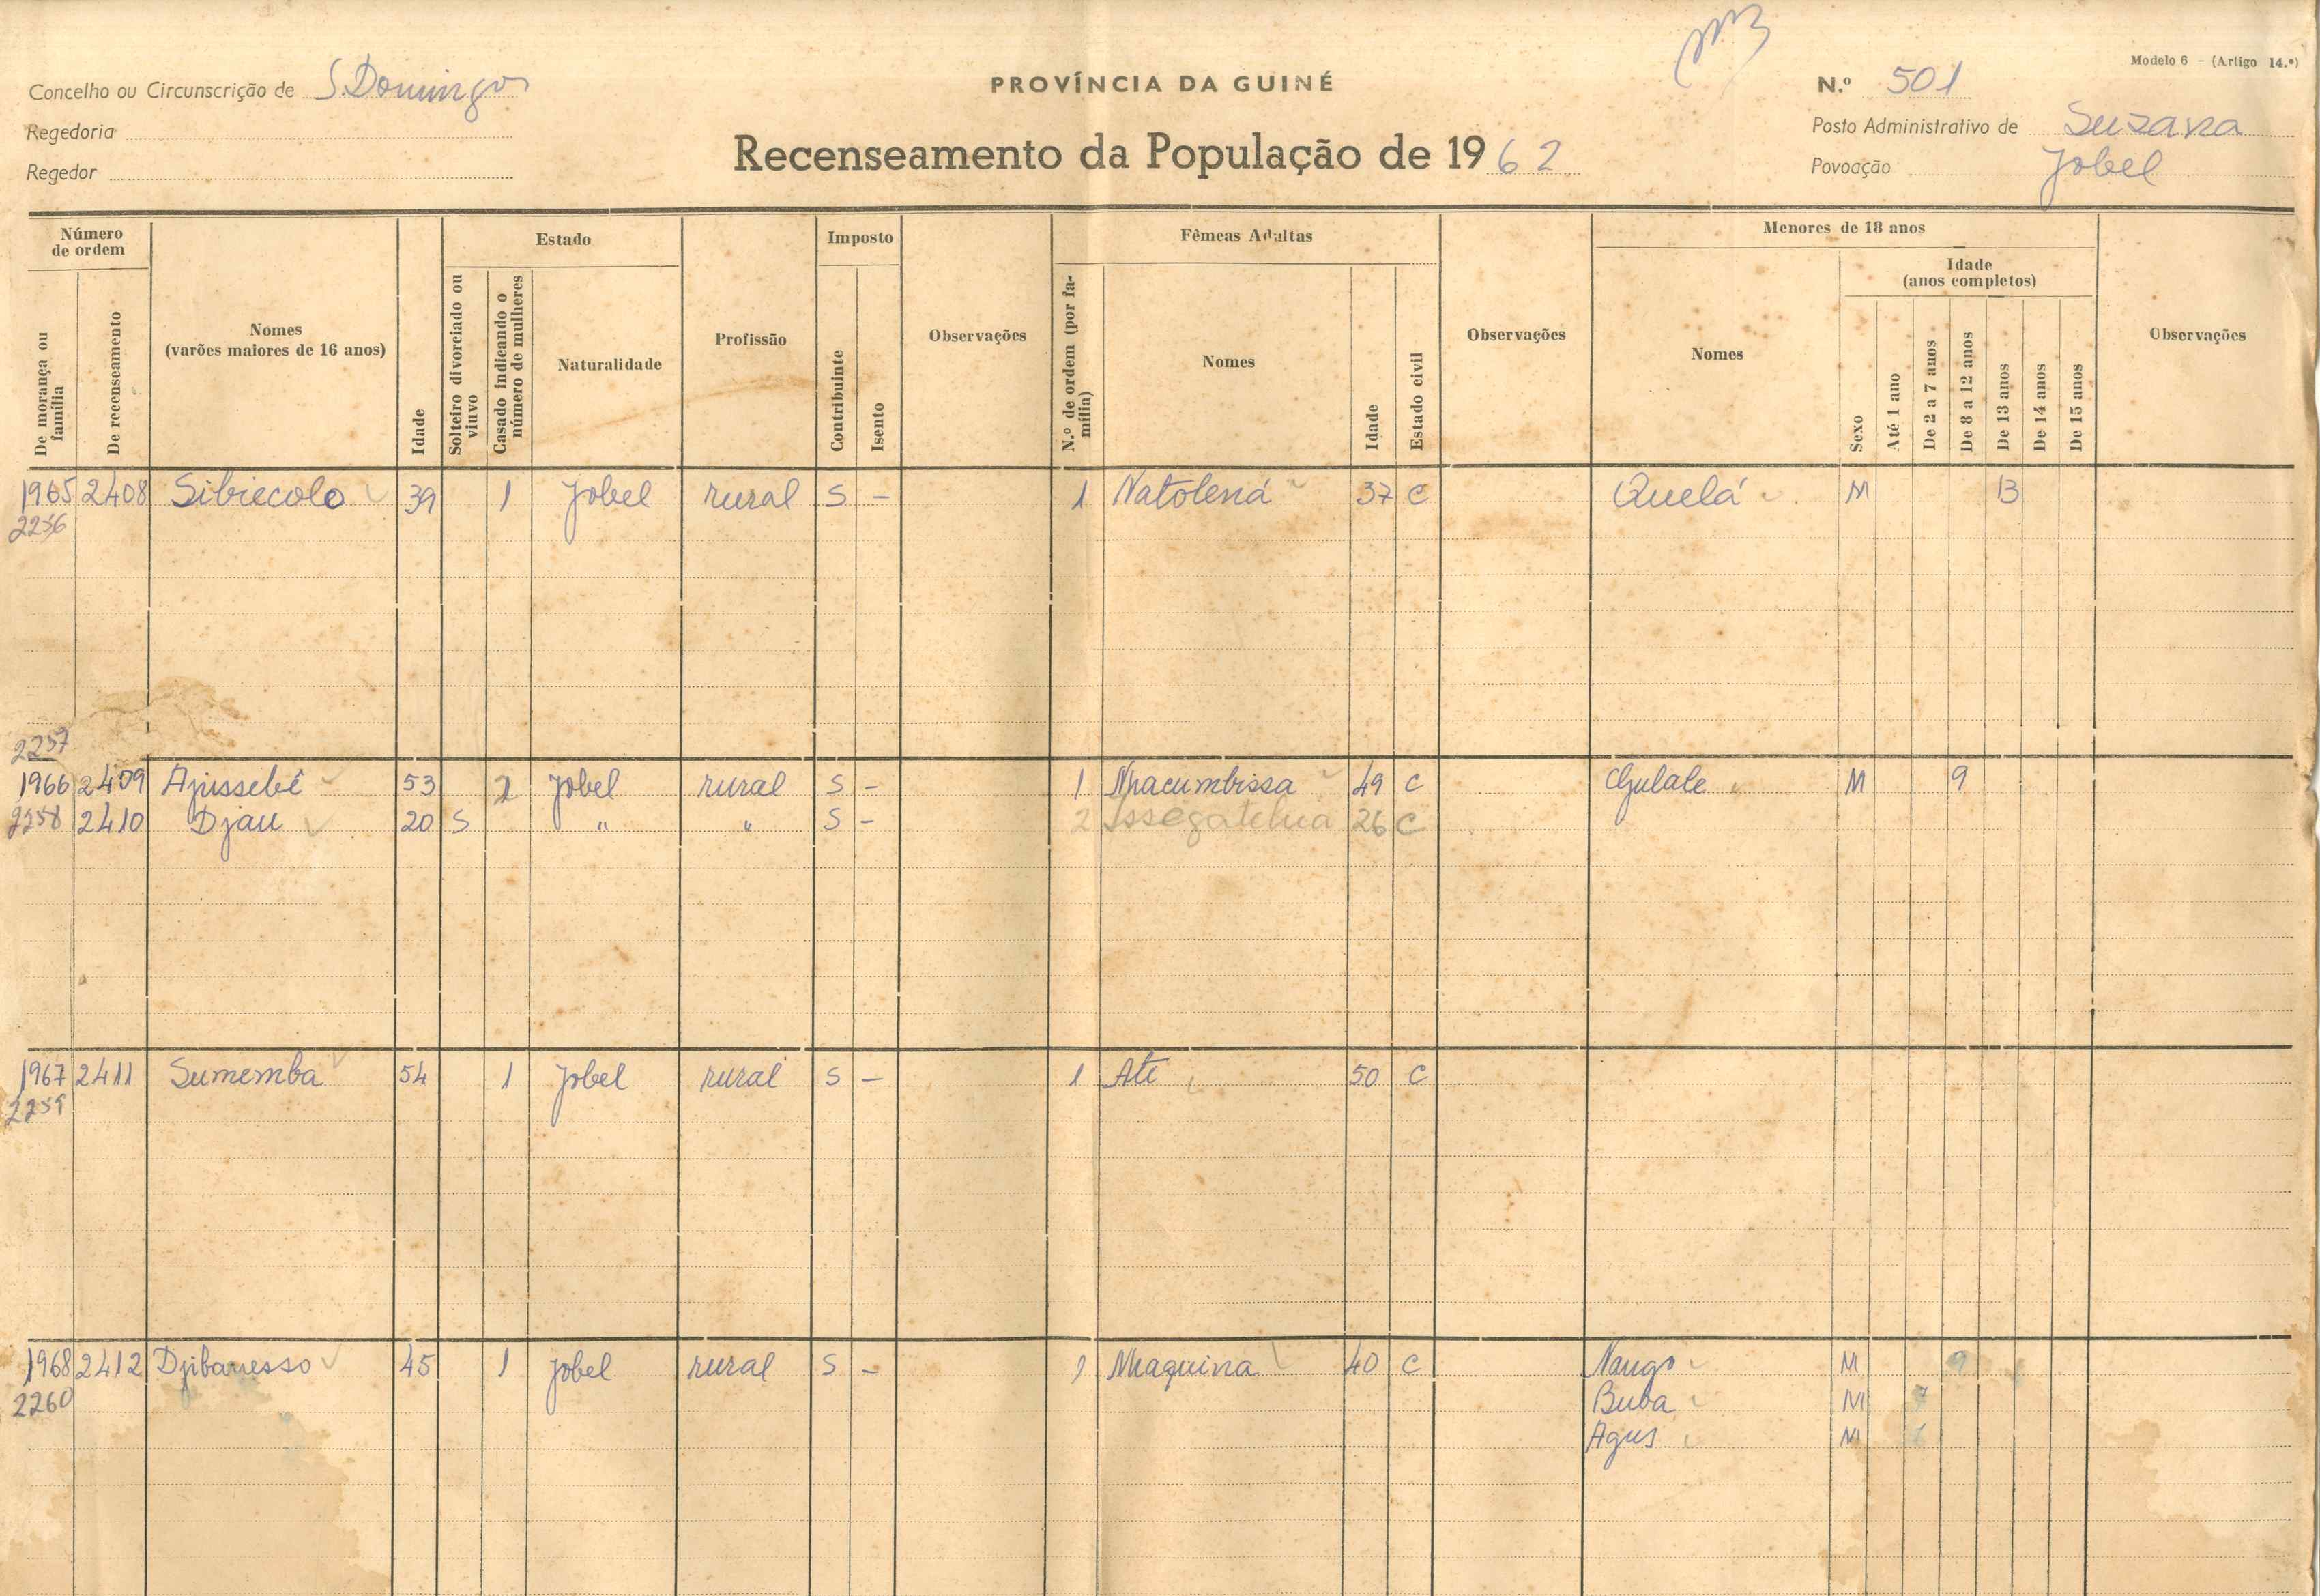 Modelo 6 - (Artigo 14.º)
Concelho ou Circunscrição de S. Domingos
PROVÍNCIA DA GUINÉ
N.º 501
Regedoria
Recenseamento da População de 1962
Posto Administrativo de Suzana
Regedor
Povoação Jobel
Número de ordem
De morança ou família
De recenseamento
Nomes
(varões maiores de 16 anos)
Idade
Estado
Solteiro divorciado ou viuvo
Casado indicando o número de mulheres
Naturalidade
Profissão
Imposto
Contribuinte
Isento
Observações
Fêmeas Adultas
N.º de ordem (por família)
Nomes
Idade
Estado civil
Observações
Menores de 18 anos
Nomes
Sexo
Idade
(anos completos)
Até 1 ano
De 2 a 7 anos
De 8 a 12 anos
De 13 anos
De 14 anos
De 15 anos
Observações
1965 2408 Sibiecolo 39 1 Jobel rural S - 1 Natolená 37 C Quelá M 13
2256
2257
1966 2409 Apissebé 53 2 Jobel rural S - 1 Nhacumbissa 49 C Gulale M 9
2258 2410 Djau 20 S " " S - 2 Issegatelua 26 C
1967 2411 Sumemba 54 1 Jobel rural S - 1 Até 50 C
2259
1968 2412 Djibanesso 45 1 Jobel rural S - 1 Nhaquina 40 C Nango M 9
2260 Buba M 7
Agus M